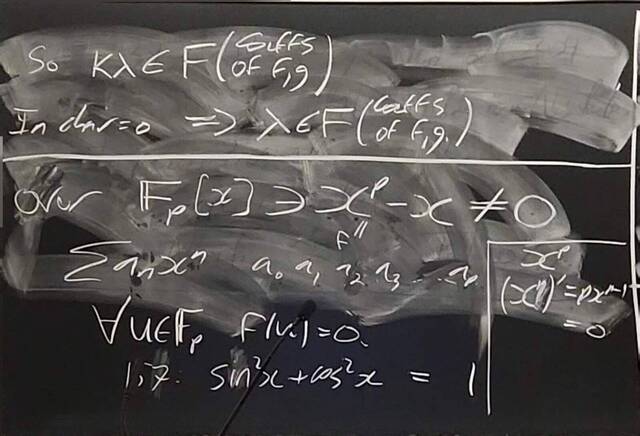 So Kλ ∈ F(coeffs of F,g)
In char=0 ⟹ λ∈F(coeffs of F,g.)
Over 𝔽_p[x] ∋ x^p - x ≠ 0
F"
∑ a_n x^n a_0 a_1 a_2 a_3 ... a_p
∀u∈𝔽_p F(u)=0.
1,7. sin²x+cos²x = 1
x^p
(x^p)' = px^{p-1}
= 0